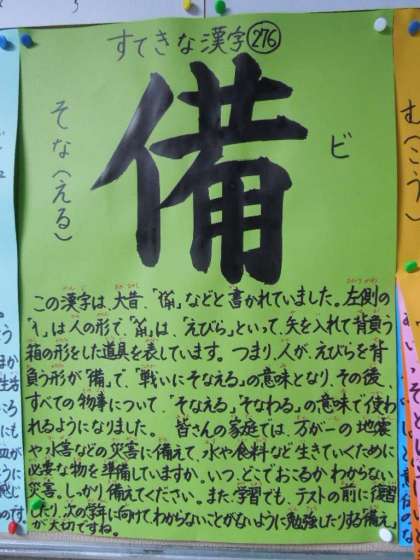 すてきな漢字276
備
そな(える)
ビ
この漢字は、大昔、「㑋」などと書かれていました。左側の
「亻」は人の形で、「𤰇」は、「えびら」といって、矢を入れて背負う
箱の形をした道具を表しています。つまり、人が、えびらを背
負う形が「備」で、「戦いにそなえる」の意味となり、その後、
すべての物事について、「そなえる」「そなわる」の意味で使わ
れるようになりました。皆さんの家庭では、万が一の地震
や水害などの災害に備えて、水や食料など生きていくために
必要な物を準備していますか。いつ、どこでおこるかわからない
災害。しっかり備えてください。また、学習でも、テストの前に復習
したり、次の学年に向けて、わからないことがないように勉強したりする「備え」
が大切ですね。
む(こう)